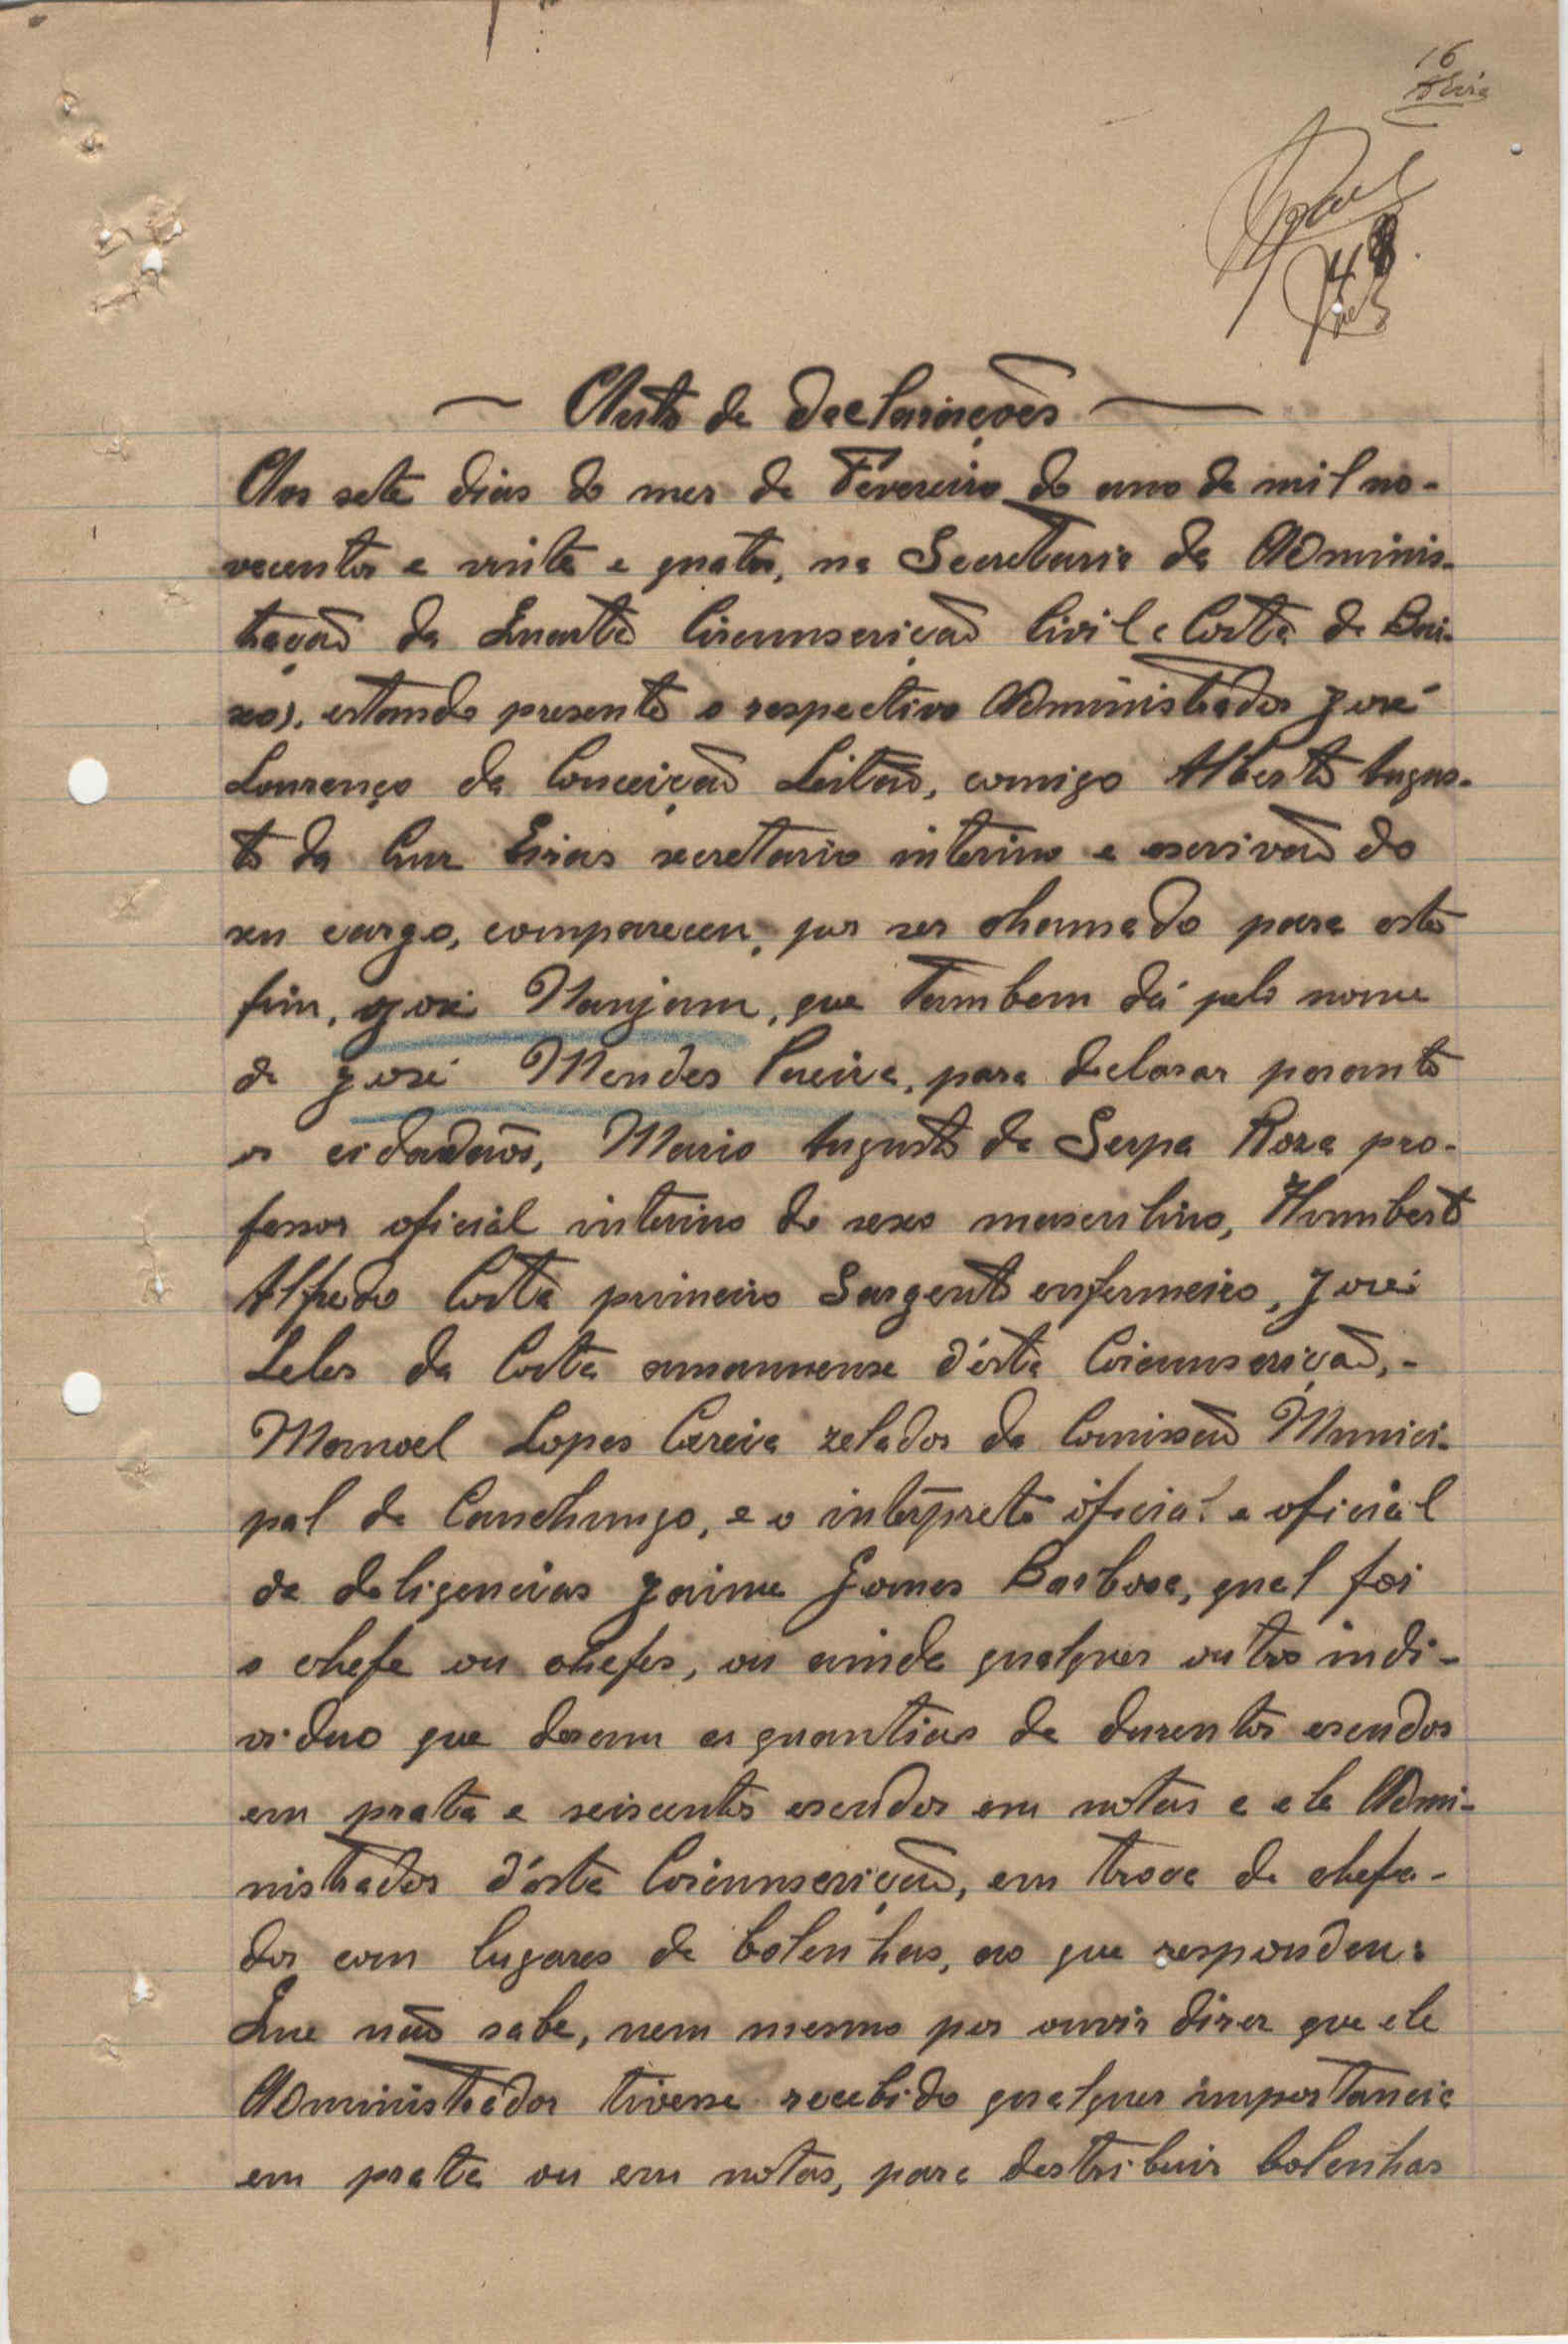 16
48
Auto de declarações
Aos sete dias do mez de Fevereiro do ano de mil no-
vecentos e vinte e quatro, na Secretaria da Adminis-
tração da Quarta Circunscrição Civil (Costa de Bai-
xo), estando presente o respectivo Administrador José
Lourenço da Conceição Leitão, comigo Alberto Augus-
to da Cruz Eiras secretario interino e escrivão do
seu cargo, compareceu, por ser chamado para este
fim, José Nanjam, que tambem dá pelo nome
de José Mendes Pereira, para declarar perante
os cidadãos, Mario Augusto de Serpa Roza pro-
fessor oficial interino do sexo masculino, Humberto
Alfredo Costa primeiro Sargento enfermeiro, José
Leles da Costa amanuense d'ésta Circunscrição,-
Manoel Lopes Correia zelador da Comissão Munici-
pal de Canchungo, e o intérprete oficial e oficial
de deligencias Jaime Gomes Barbosa, qual foi
o chefe ou chefes, ou ainda qualquer outro indi-
viduo que deram as quantias de duzentos escudos
em prata e seiscentos escudos em notas e ele Admi-
nistrador d'ésta Circunscrição, em troca de chefa-
dos com lugares de bolenhas, ao que respondeu:
Que não sabe, nem mesmo por ouvir dizer que ele
Administrador tivesse recebido qualquer importancia
em prata ou em notas, para destribuir bolenhas